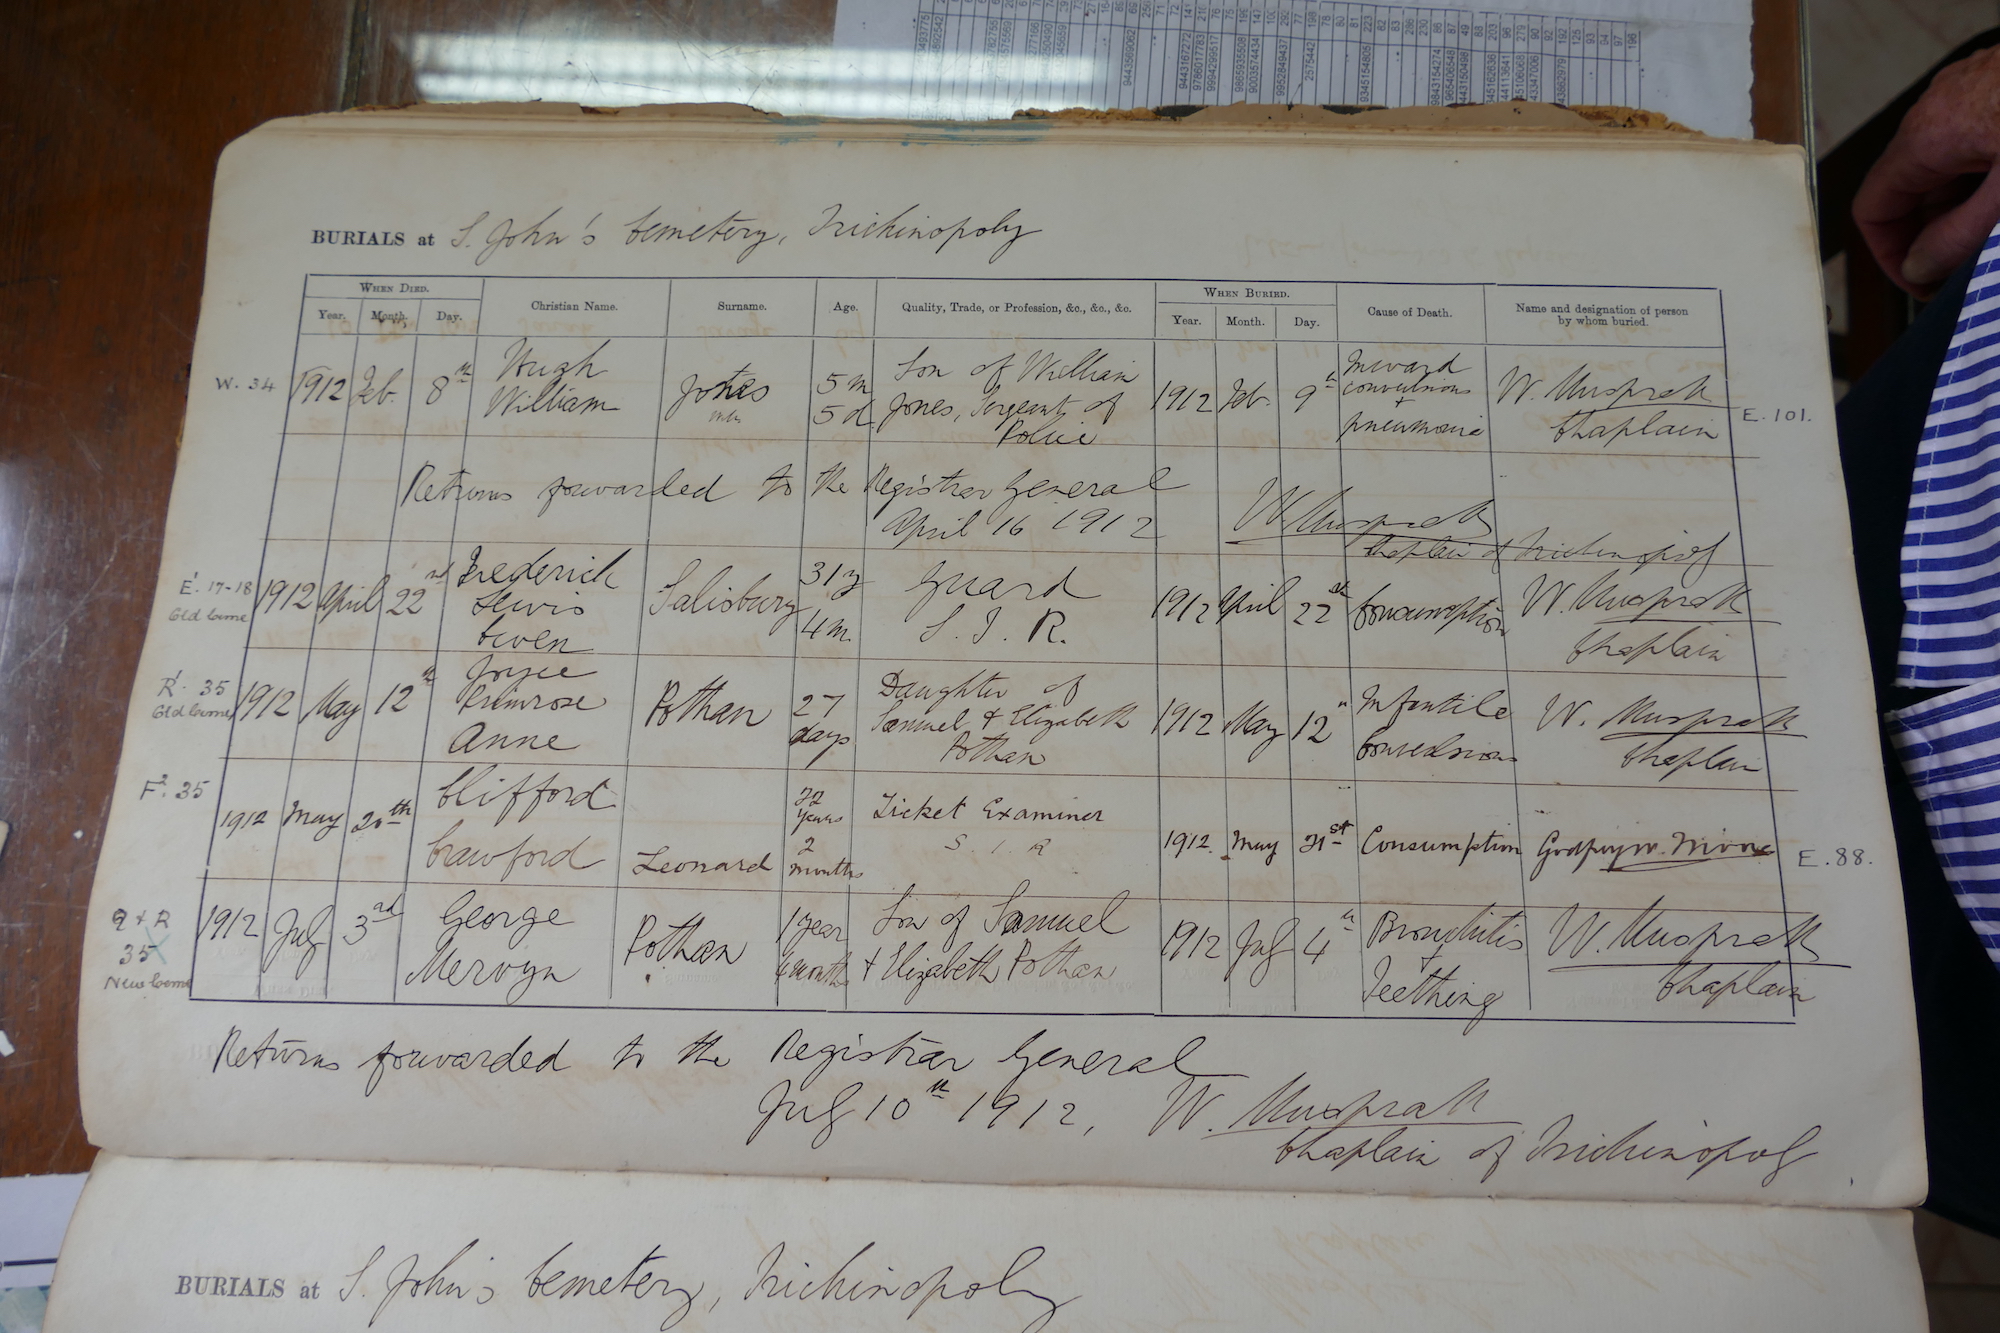 BURIALS at S. John's Cemetery, Trichinopoly
WHEN DIED. Christian Name. Surname. Age. Quality, Trade, or Profession, &c., &c., &c. WHEN BURIED. Cause of Death. Name and designation of person by whom buried.
Year. Month. Day. Year. Month. Day.
W. 34 1912 Feb. 8th Hugh William Jones 5 m 5 d Son of William Jones, Sergeant of Police 1912 Feb. 9th Inward convulsions + pneumonia W. Muspratt Chaplain E. 101.
Returns forwarded to the Registrar General
April 16 1912 W. Muspratt
Chaplain of Trichinopoly
E'. 17-18 Old Ceme 1912 April 22nd Frederick Lewis Owen Salisbury 31 y 4 m. Guard S. I. R. 1912 April 22nd Consumption W. Muspratt Chaplain
R'. 35 Old Ceme 1912 May 12th Joyce Primrose Anne Pothan 27 days Daughter of Samuel & Elizabeth Pothan 1912 May 12th Infantile Convulsions W. Muspratt Chaplain
F². 35 1912 May 20th Clifford Crawford Leonard 22 years 2 months Ticket Examiner S. I. R 1912. May 21st Consumption Godfrey E. 88.
Q & R 35 New Ceme 1912 July 3rd George Mervyn Pothan 1 year 4 months Son of Samuel & Elizabeth Pothan 1912 July 4th Bronchitis + Teething W. Muspratt Chaplain
Returns forwarded to the Registrar General
July 10th 1912, W. Muspratt
Chaplain of Trichinopoly
BURIALS at S. John's Cemetery, Trichinopoly